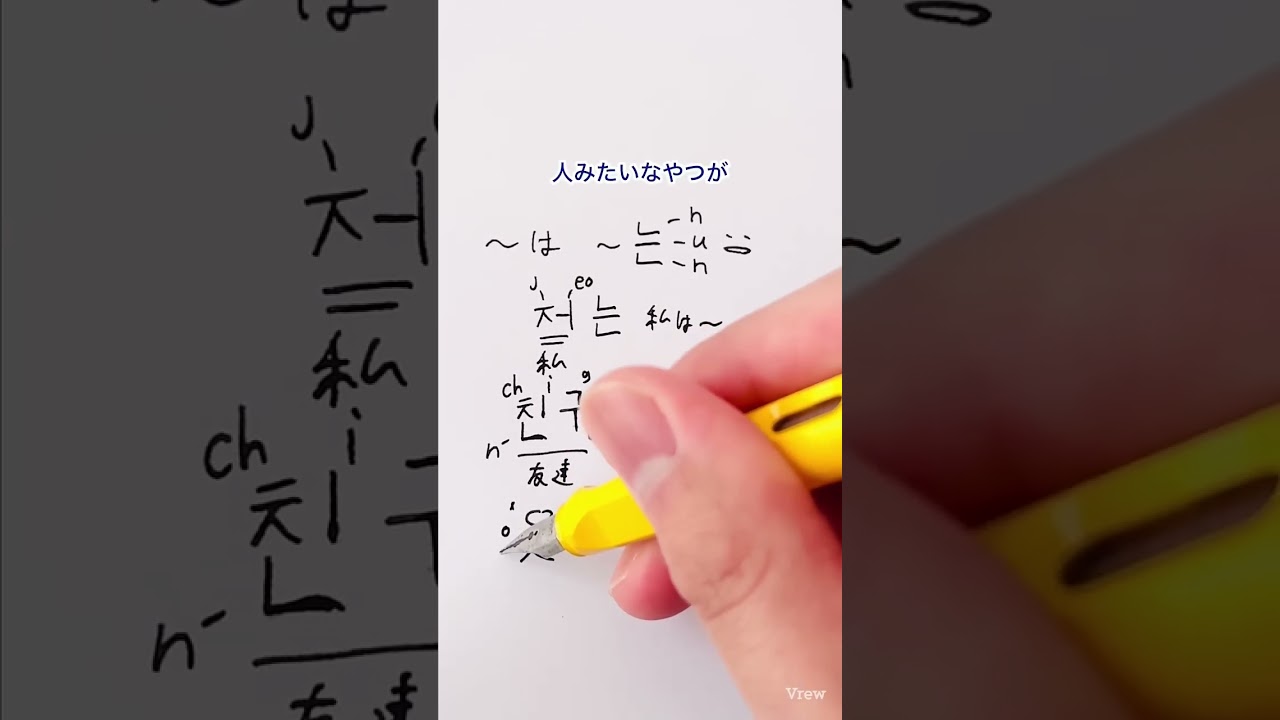 人みたいなやつが
~は ~는 - n - u - n
j eo
저는 私は~
私
ch i g
친구
n
友達
o
Vrew